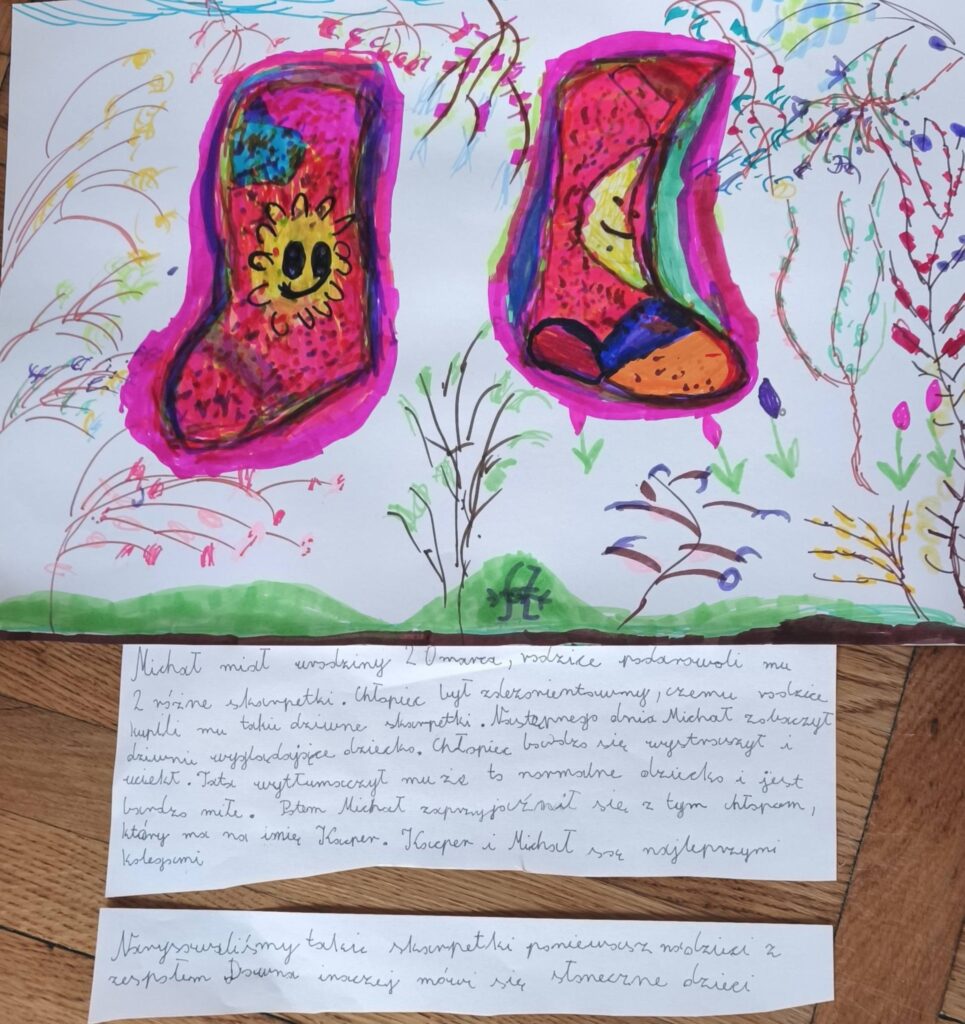 Michał miał urodziny 20 marca, rodzice podarowoli mu
2 różne skarpetki. Chłopiec był zdezorientowany, czemu rodzice
kupili mu takie dziwne skarpetki. Następnego dnia Michał zobaczył
dziwnie wyglądające dziecko. Chłopiec bardzo się wystraszył i
uciekł. Tata wytłumaczył mu że to normalne dziecko i jest
bardzo miłe. Potem Michał zaprzyjaźnił się z tym chłopcem,
który ma na imię Kacper. Kacper i Michał są najleprzymi
kolegami
Narysowaliśmy takie skarpetki poniewarz na dzieci z
zespołem Downa inaczej mówi się słoneczne dzieci